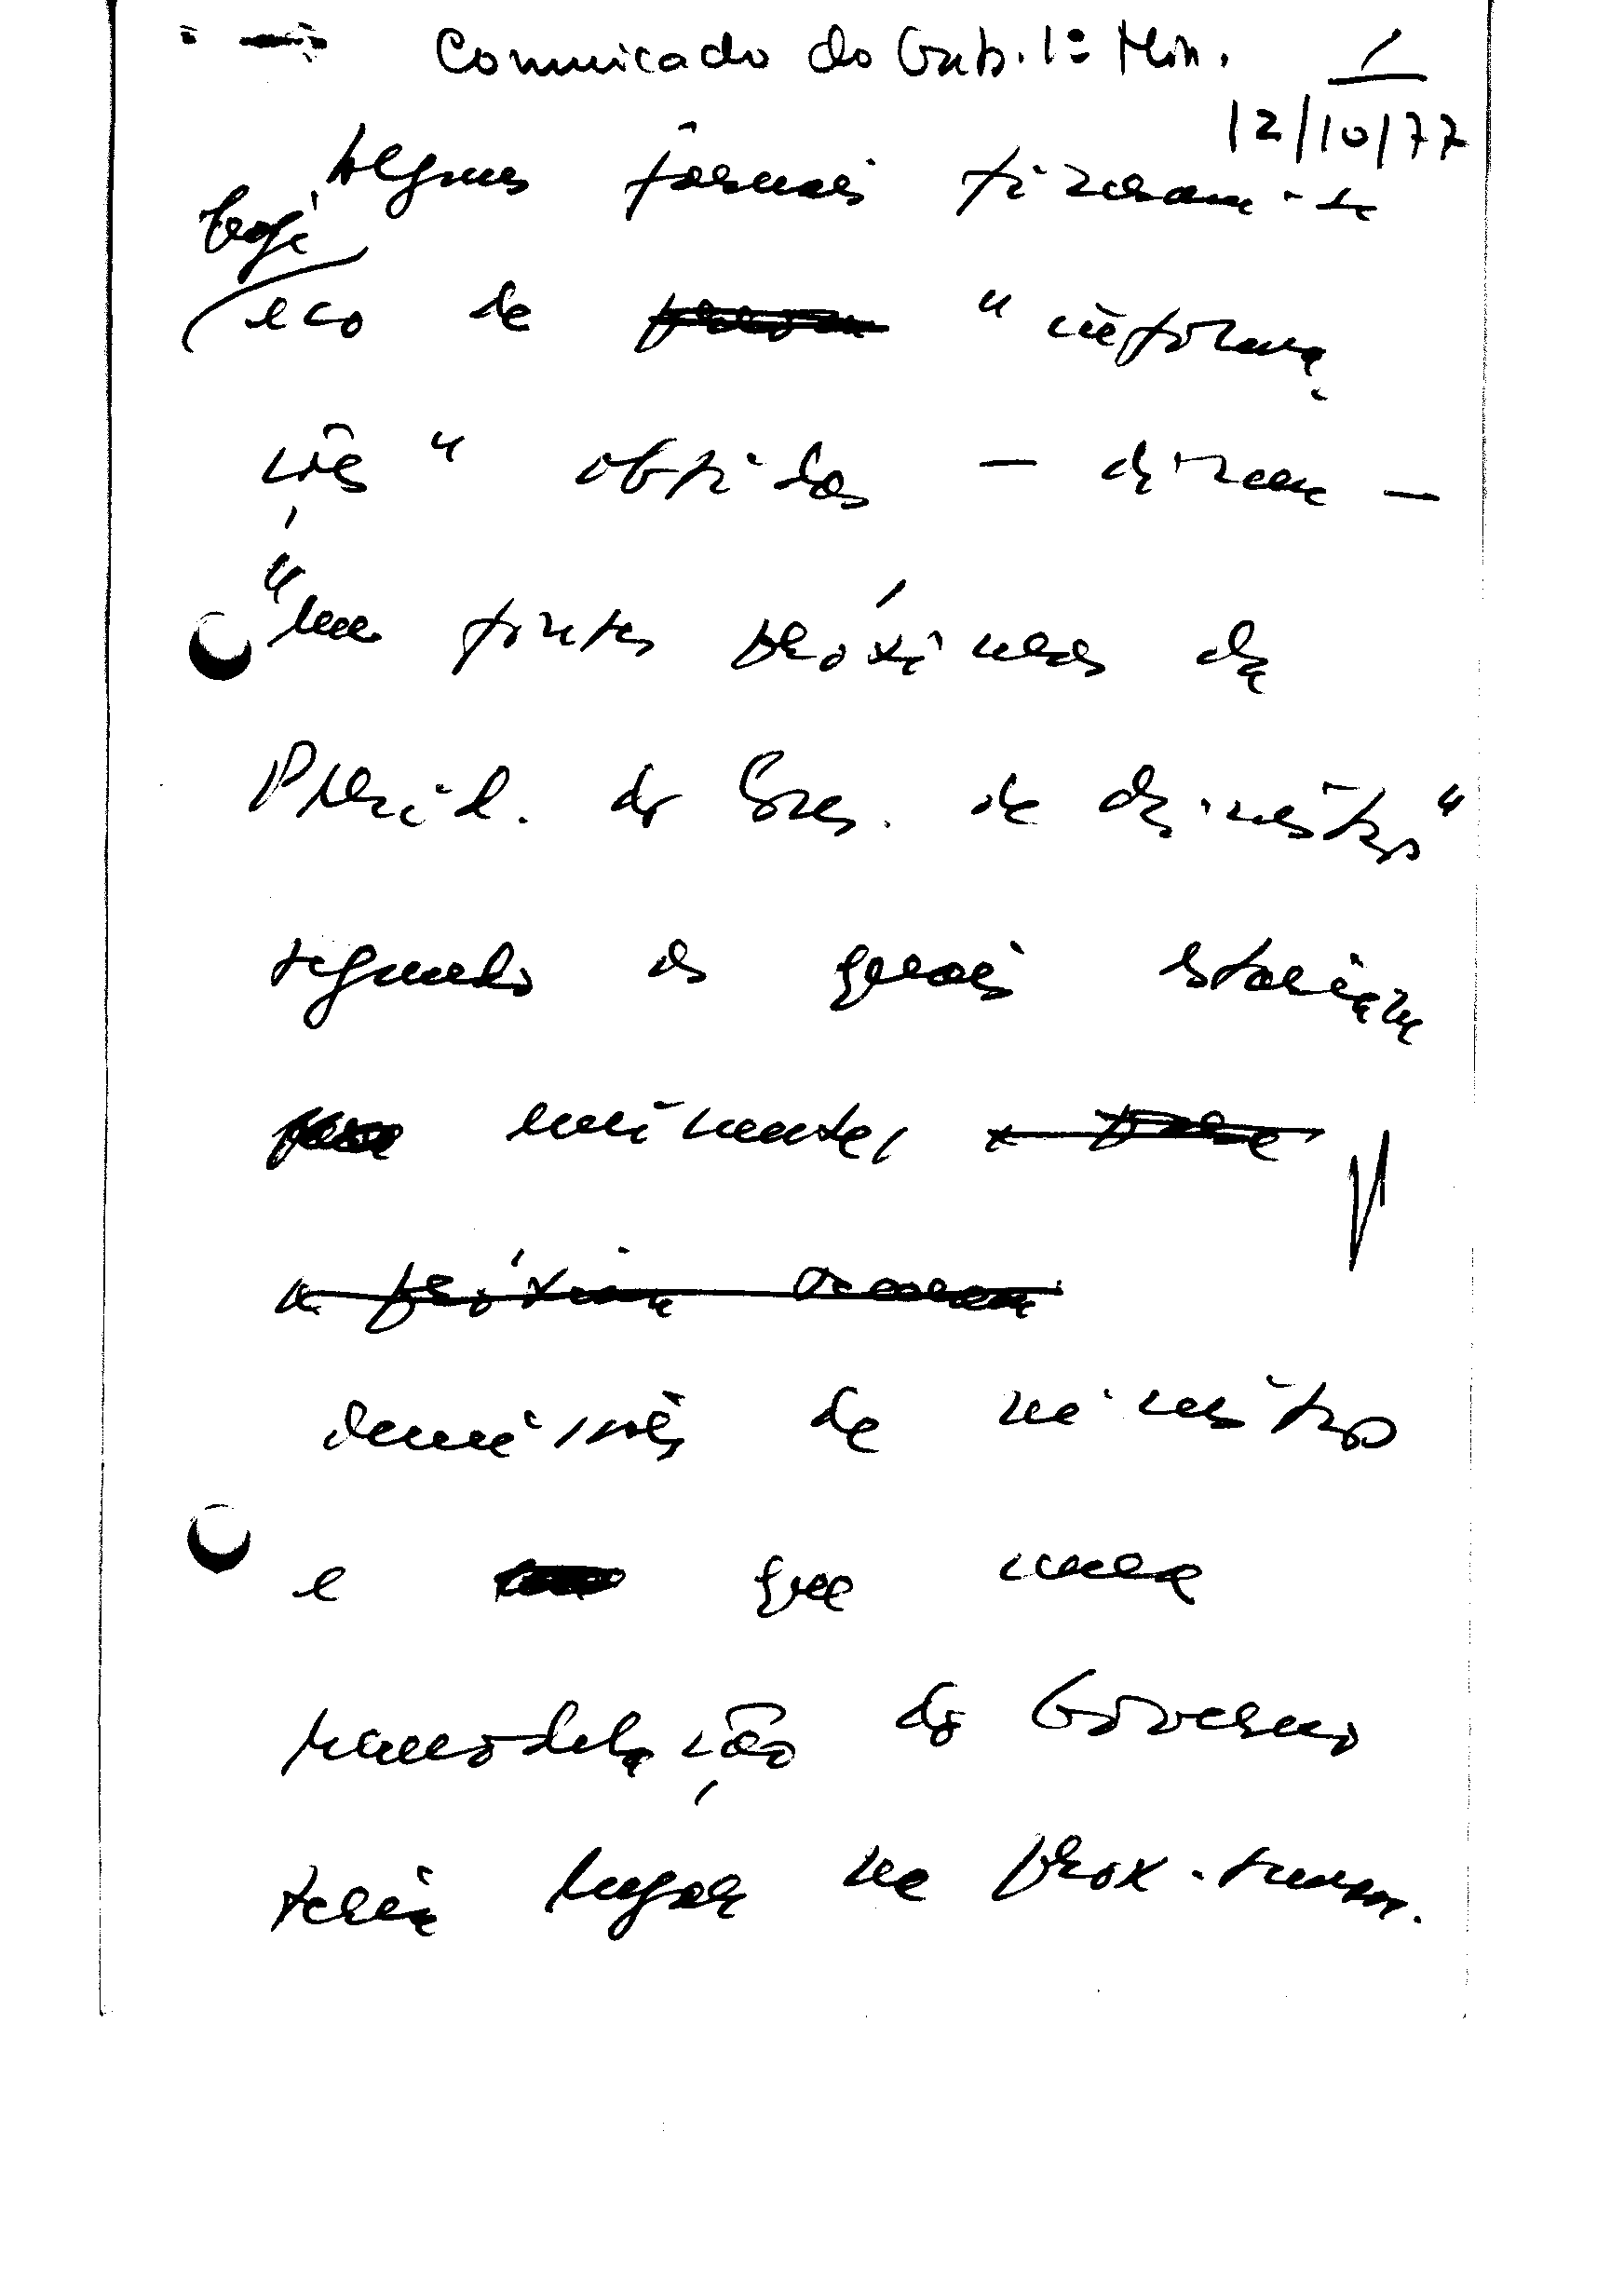 Comunicado do Gab. 1º Min. 1
12/10/77
Alguns jornais fizeram-se
hoje
eco de "informa
ções" obtidas — dizem —
"em fontes próximas da
Presid. do Cons. de Ministros"
segundo as quais estariam
iminentes,
a próxima
demissões de ministros
e que uma
remodelação do Governo
teria lugar na próx. seman.